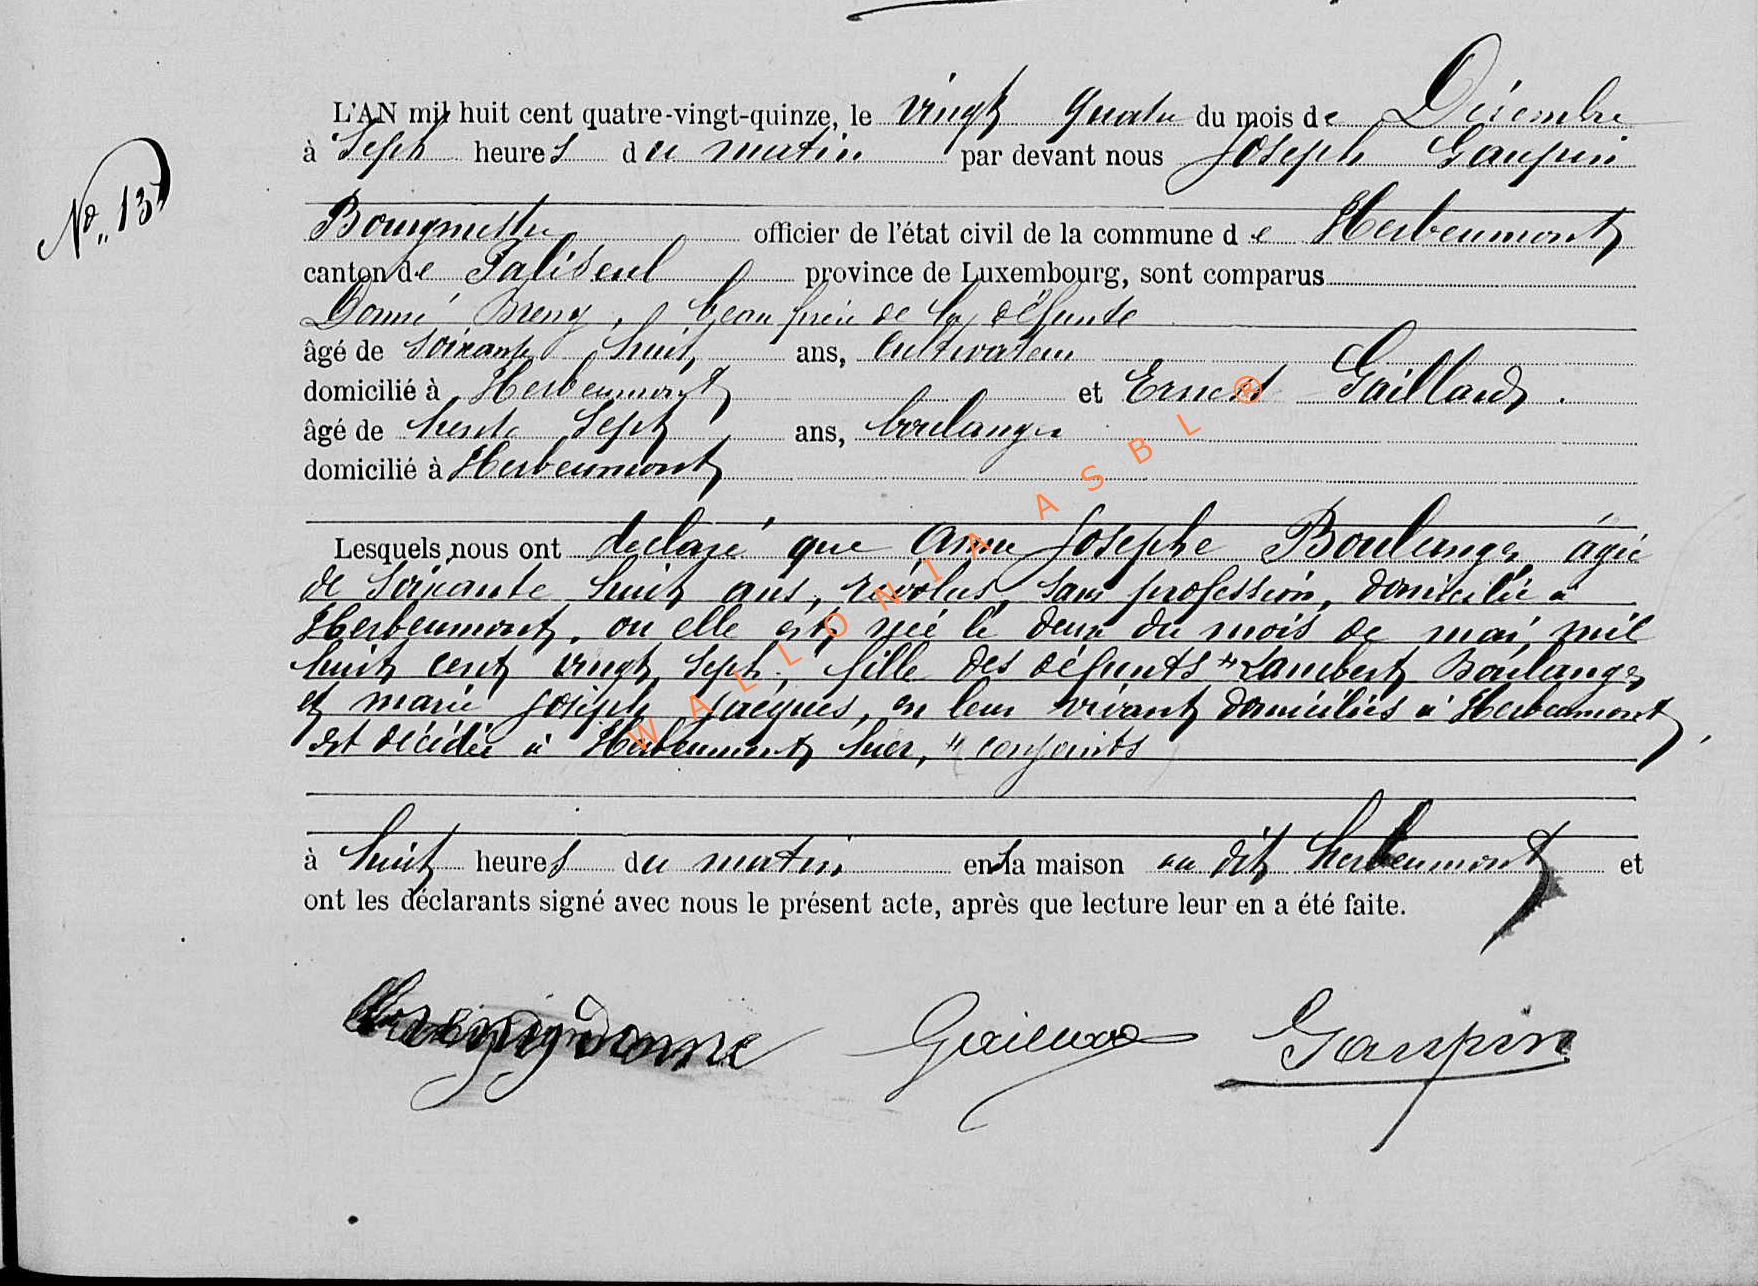 L'AN mil huit cent quatre-vingt-quinze, le vingt quatre du mois de Décembre
à Sept heures du matin par devant nous Joseph Gaupin
No 13
Bourgmestre officier de l'état civil de la commune de Herbeumont
canton de Paliseul province de Luxembourg, sont comparus
Donné Breny, beau frère de la défunte
âgé de soixante huit ans, cultivateur
domicilié à Herbeumont et Ernest Gaillard.
âgé de trente sept ans, boulanger
domicilié à Herbeumont
Lesquels nous ont declaré que Anne Josephe Boulanger agée
de soixante huit ans, révolus, sans profession, domiciliée à
Herbeumont, ou elle est née le deux du mois de mai mil
huit cent vingt sept, fille des défunts " Lambert Boulanger
et marie joseph jacques, en leur vivant domiciliés à Herbeumont,
est décédée à Herbeumont hier, " conjoints
à huit heures du matin en sa maison au dit herbeumont et
ont les déclarants signé avec nous le présent acte, après que lecture leur en a été faite.
donné Gaillard Gaupin
WALLONIA ASBL ®